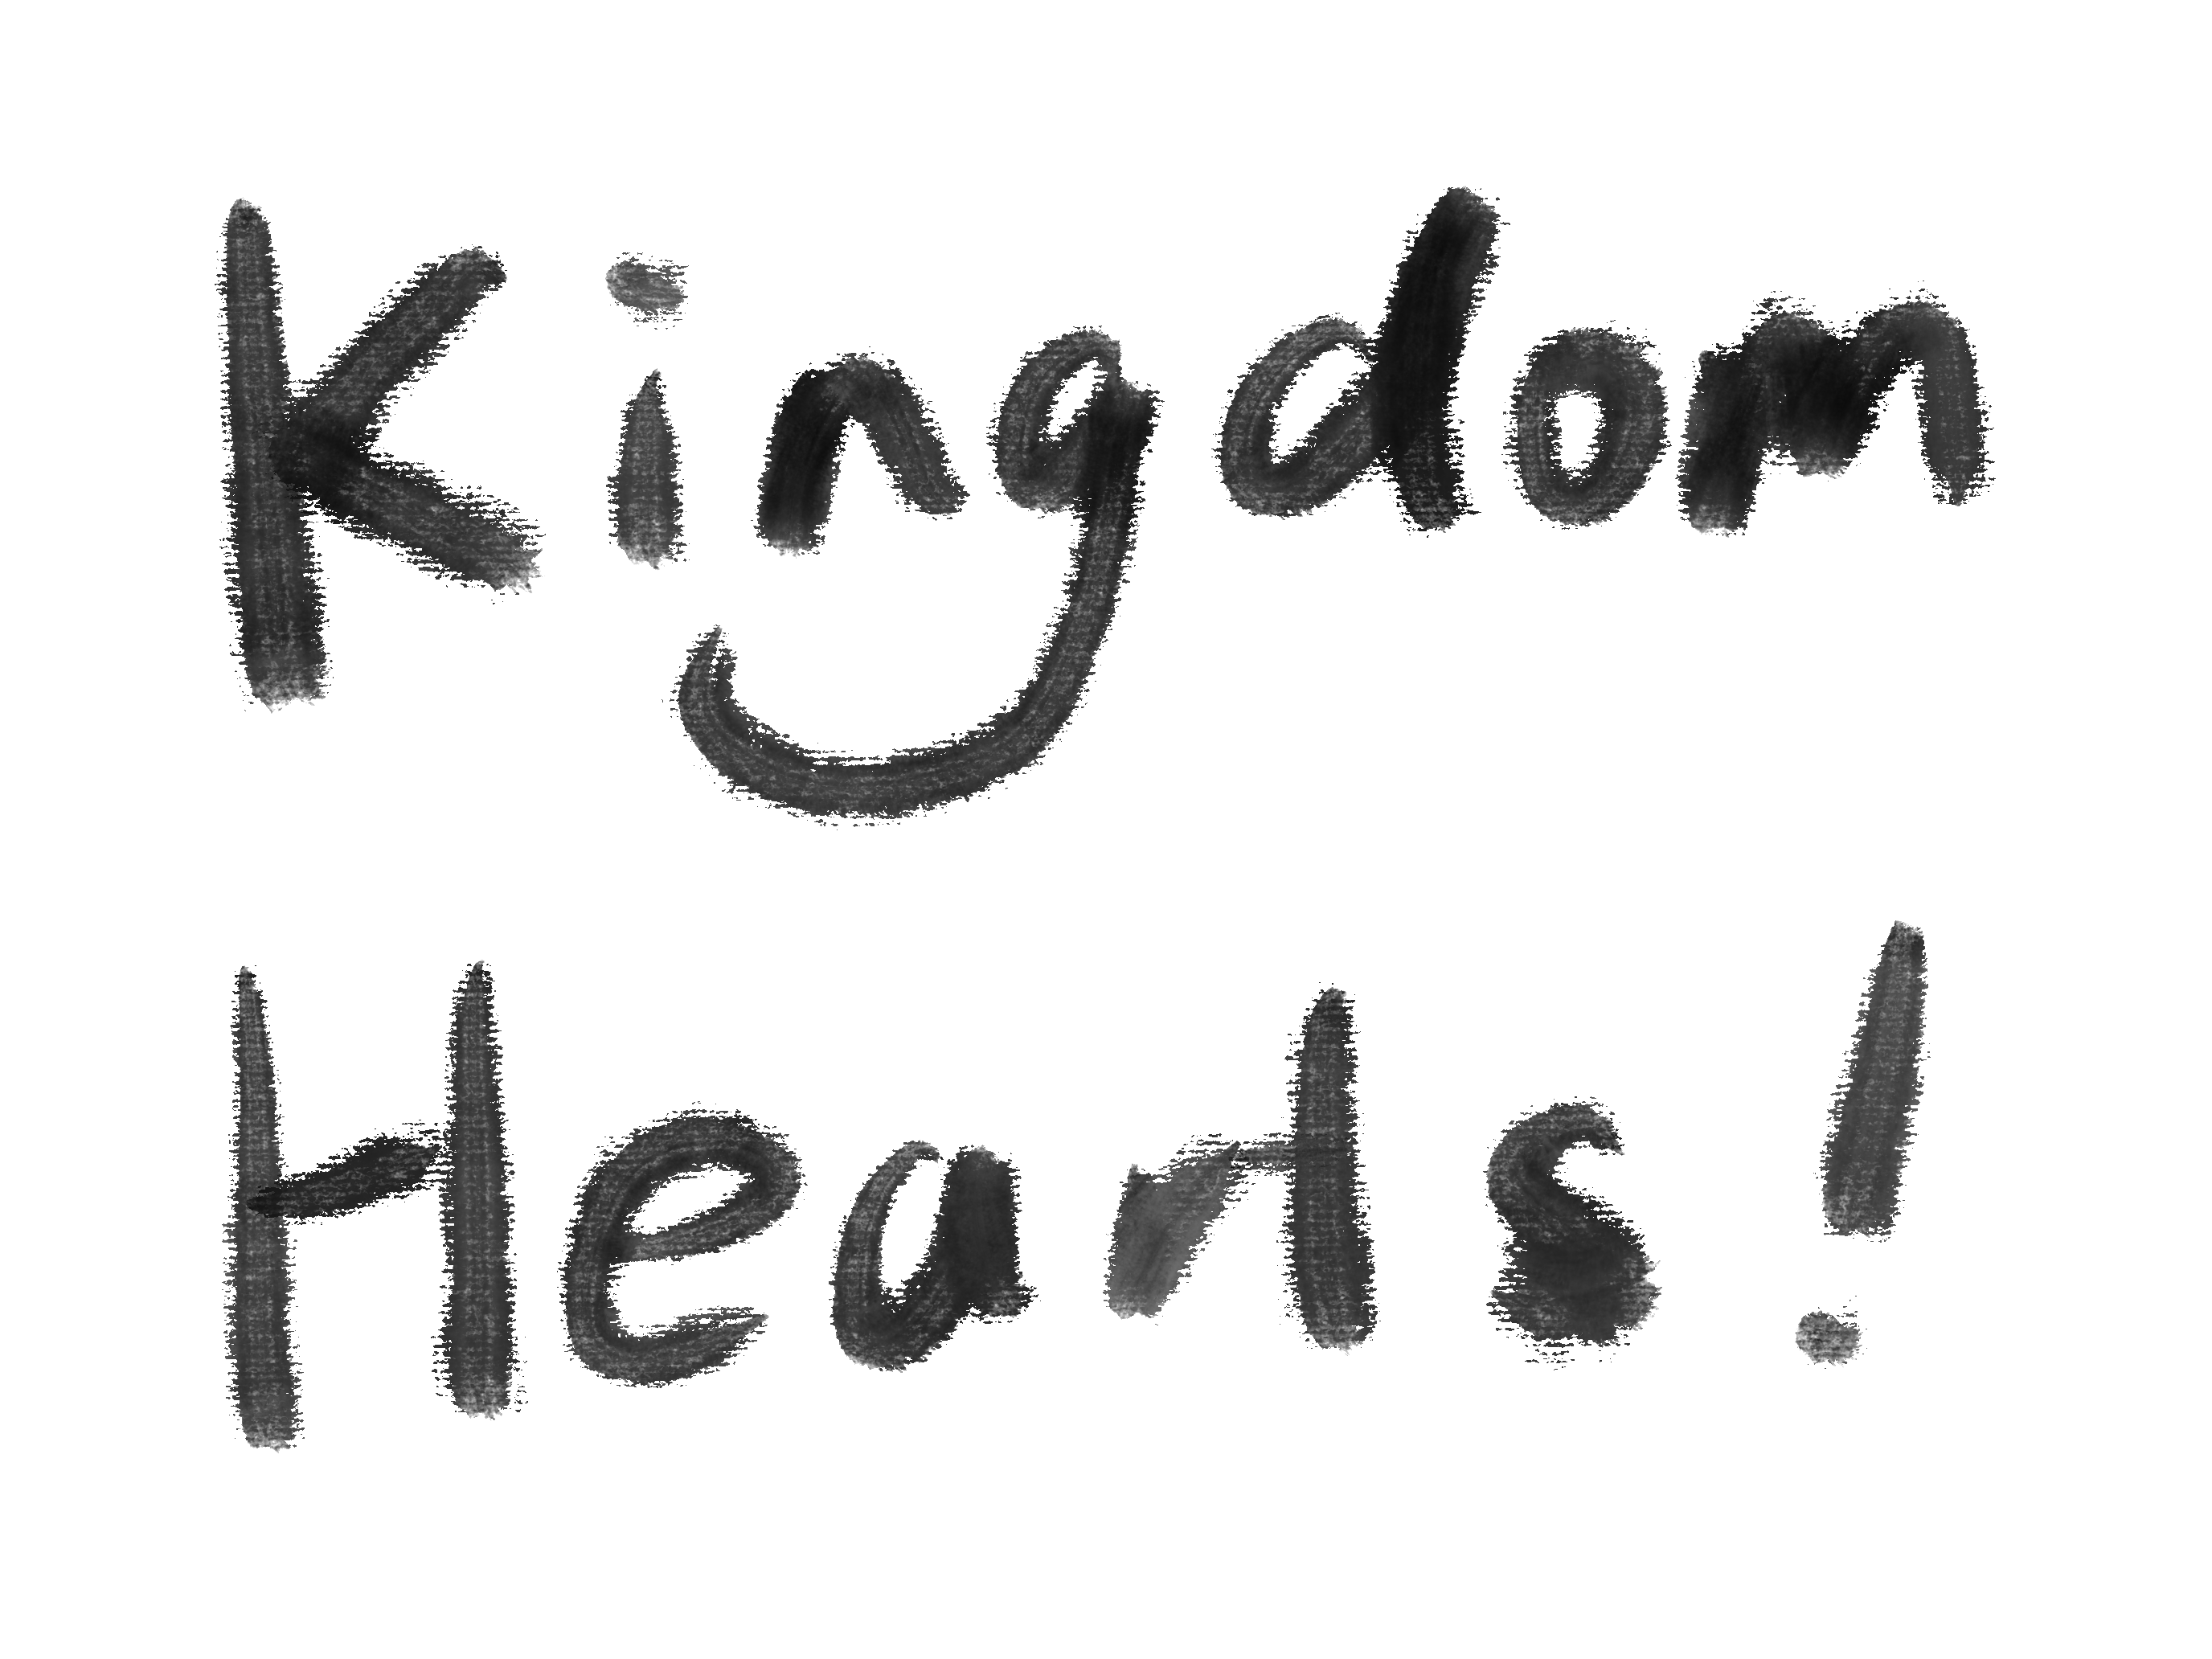 Kingdom
Hearts!